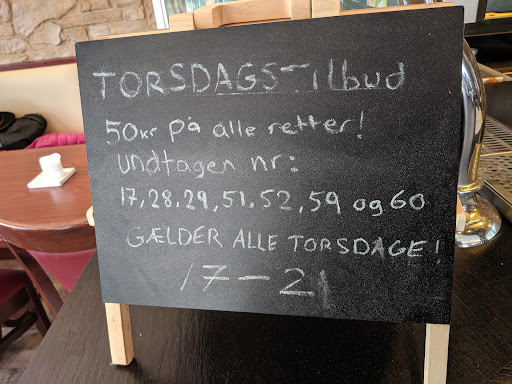 TORSDAGSTilbud
50kr på alle retter!
undtagen nr:
17, 28, 29, 51, 52, 59 og 60
GÆLDER ALLE TORSDAGE!
17-21